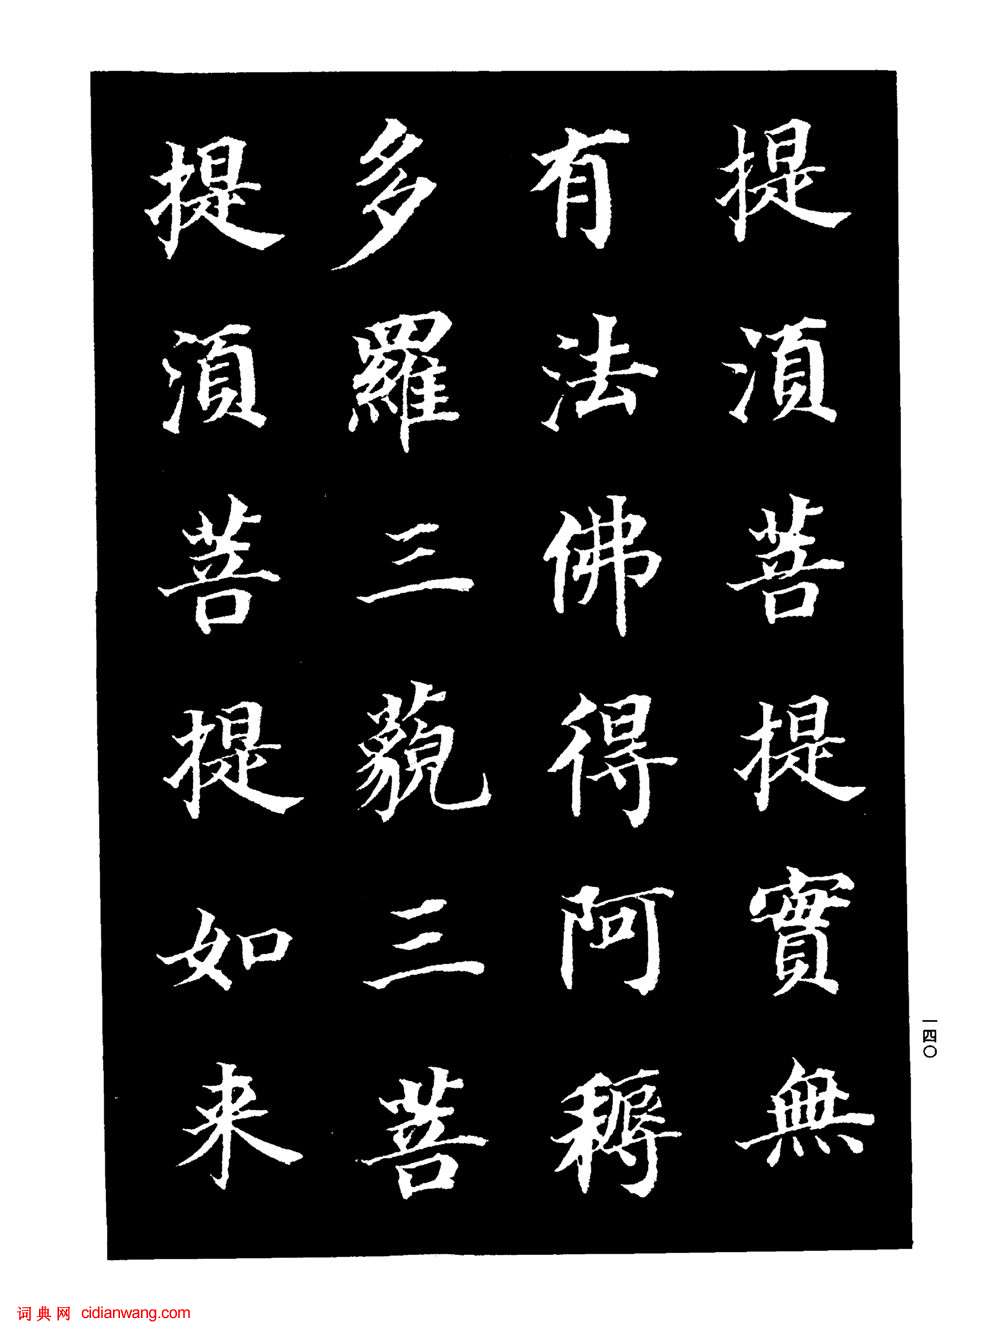 提湏菩提實無
有法佛得阿耨
多羅三藐三菩
提湏菩提如来
一四〇
词典网 cidianwang.com